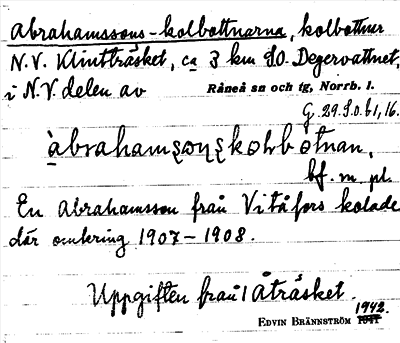 Abrahamssons-kolbottnarna, kolbottnar
N.V. Klintträsket, ca 3 km S.O. Degervattnet,
i N.V. delen av Råneå sn och tg, Norrb. l.
G. 29. S.O. b1, 16.
bf. m. pl.
En Abrahamsson från Vitåfors kolade
där omkring 1907-1908.
Uppgiften från Åträsket.
1942.
EDVIN BRÄNNSTRÖM 1941